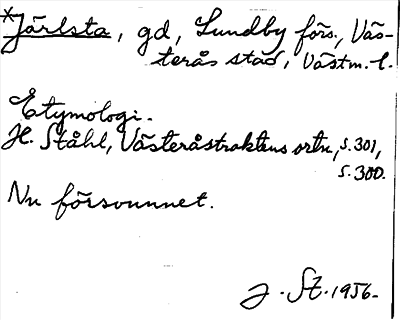 *Järlsta, gd, Lundby förs., Väs-
terås stad, Västm. l.
Etymologi.
H. Ståhl, Västeråstraktens ortn., s. 301,
s. 300.
Nu försvunnet.
J. St. 1956.